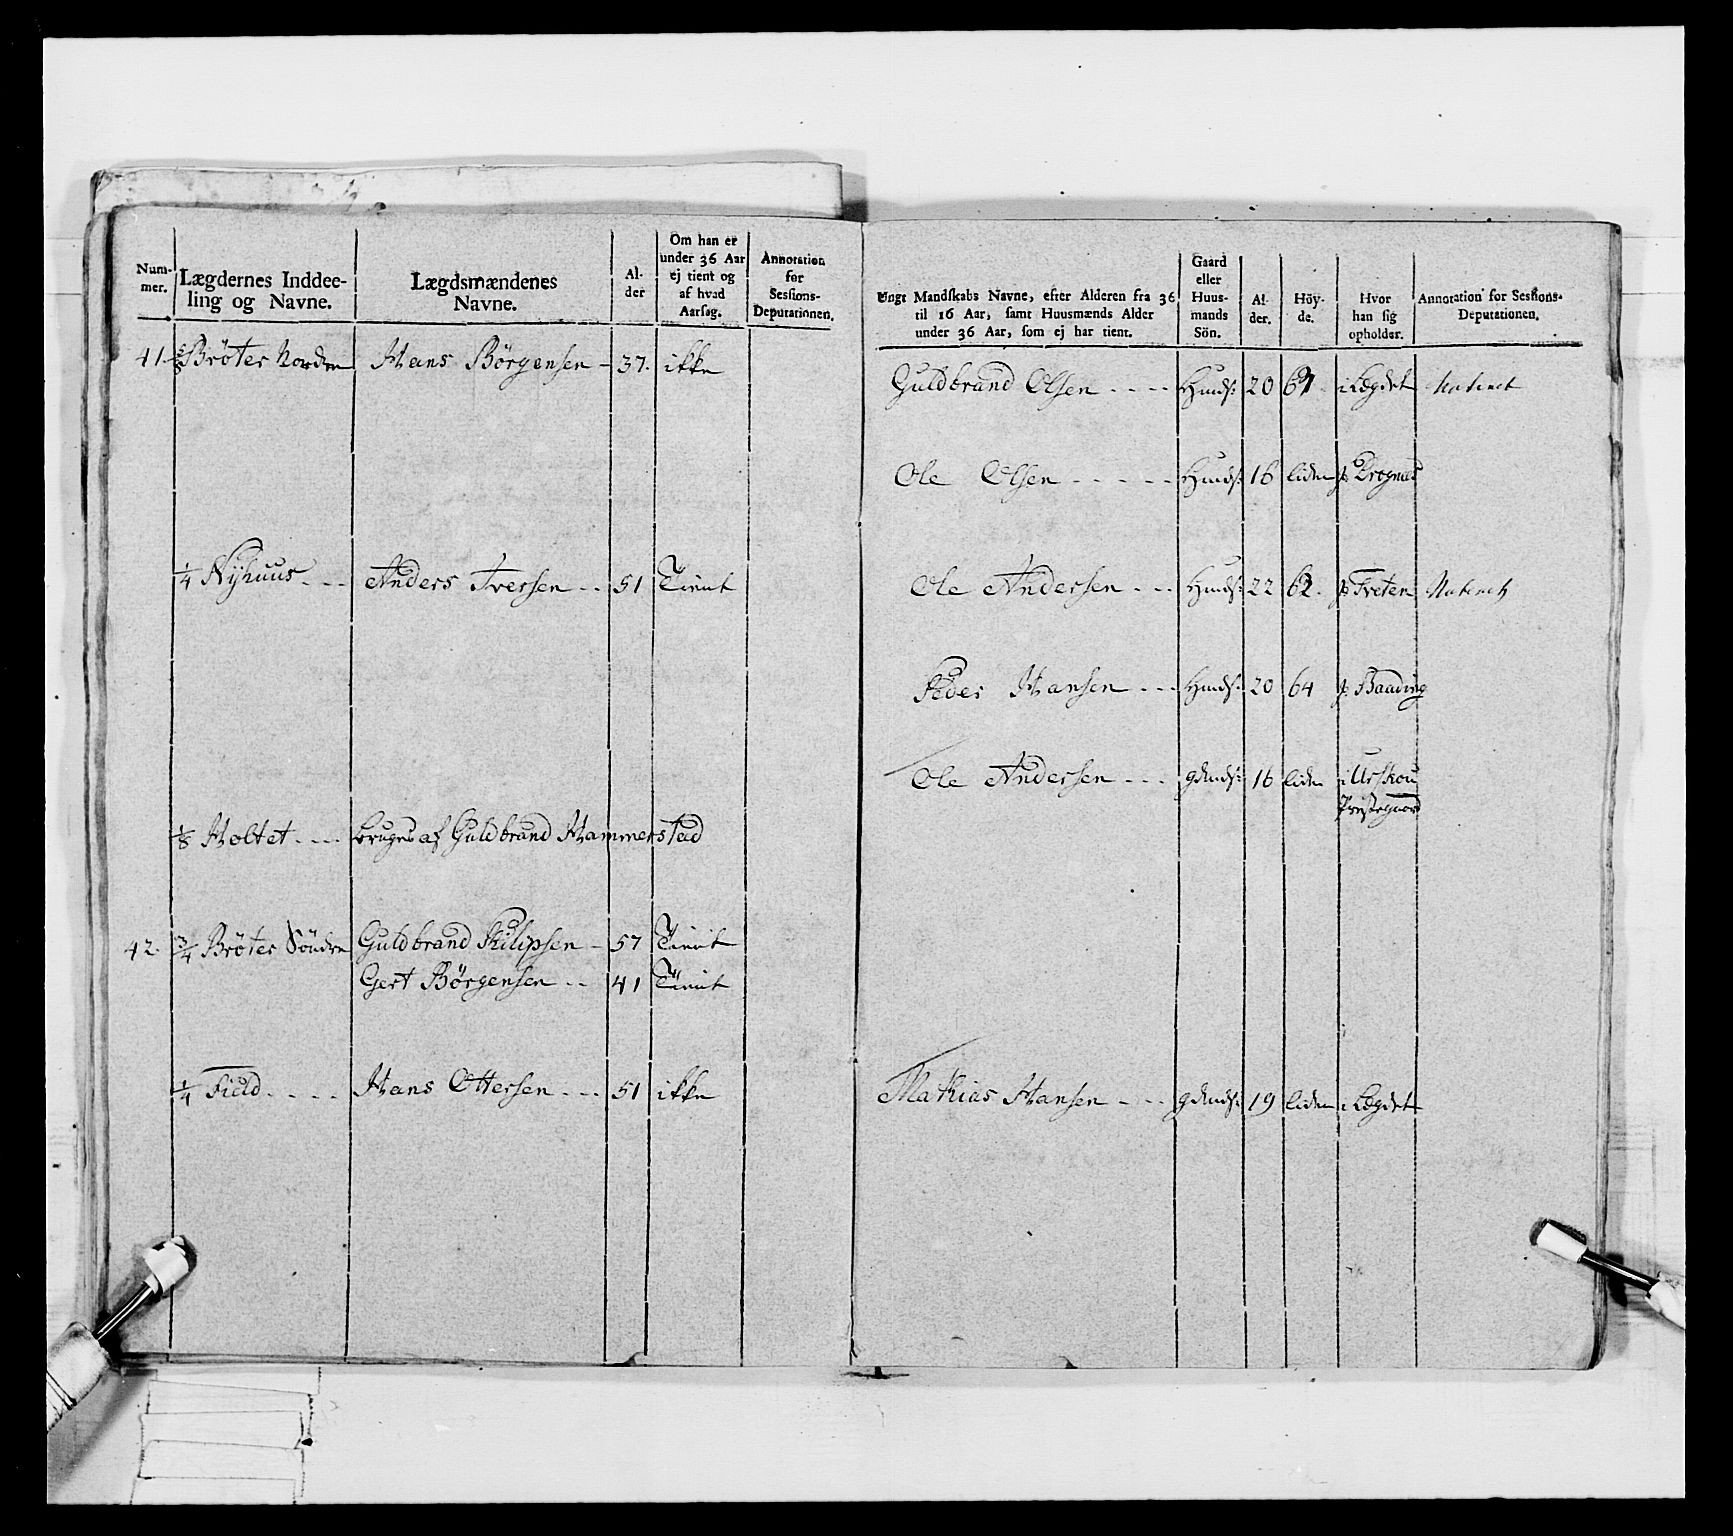 Num-
mer.
Lægdernes Inddee-
ling og Navne.
Lægdsmændenes
Navne.
Al-
der
Om han er
under 36 Aar
ej tient og
af hvad
Aarsag.
Annotation
for
Sessions-
Deputationen.
41. Brøter Nordre Hans Børgensen - 37. ikke
1/4 Nyhuus - - - Anders Iversen - - 51 Tient
1/8 Holtet - - - bruges af Guldbrand Hammerstad
42. 3/4 Brøter Söndre Guldbrand Filipsen - 57 Tient
Gert Børgensen - - 41 Tient
1/4 Field - - - - Hans Ottersen - - - 51 ikke
Ungt Mandskabs Navne, efter Alderen fra 36
til 16 Aar, samt Huusmænds Alder
under 36 Aar, som ej har tient.
Gaard
eller
Huus-
mands
Sön.
Al-
der.
Höy-
de.
Hvor
han sig
opholder.
Annotation for Sessions-
Deputationen.
Guldbrand Olsen - - - - Hmds: 20 i Lægdet
Ole Olsen - - - - - Hmds: 16 liden
Ole Andersen - - - Hmds: 22 62. Tveten
Peder Hansen - - - Hmds: 20 64 Baading
Ole Andersen - - - gdmds: 16 liden i Urskou
Præstegaard
Mathias Hansen - - - gdmds: 19 liden i Lægdet